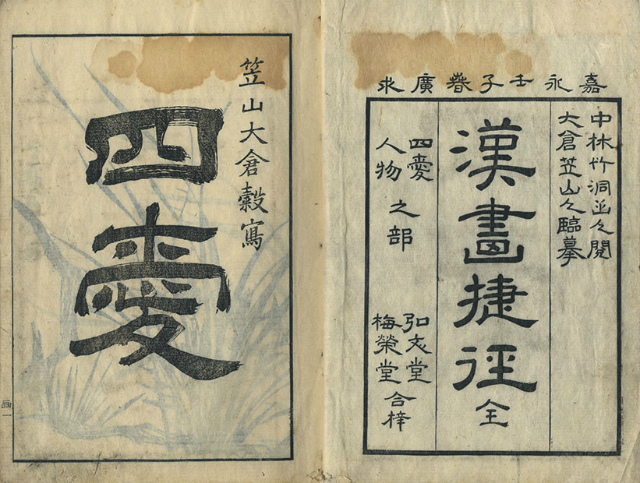 嘉永壬子春廣求
中林竹洞山人閲
大倉笠山人臨摹
漢畫捷徑全
四愛
人物
之部
弘文堂
梅榮堂
合梓
笠山大倉穀寫
四愛